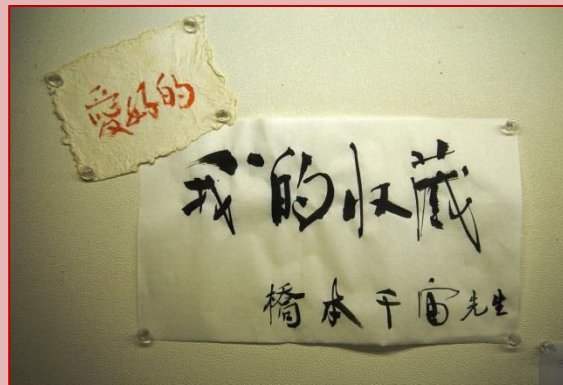 愛好的
我的收藏
橋本千宙先生